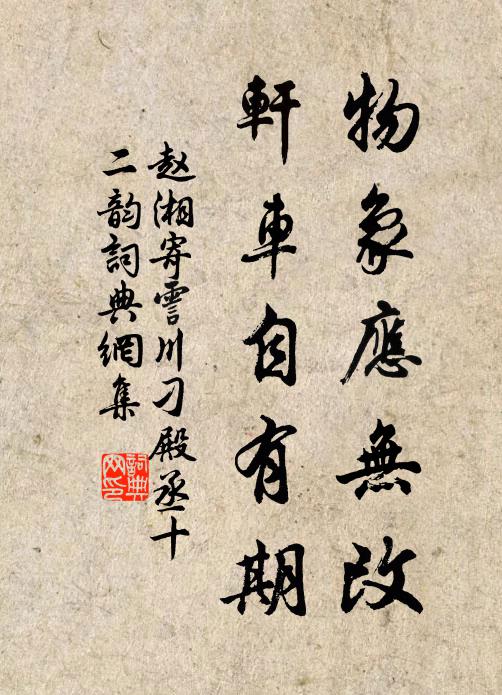 物象應無改
軒車自有期
赵湘寄霅川刁殿丞十
二韵詞典網集
詞典
网印